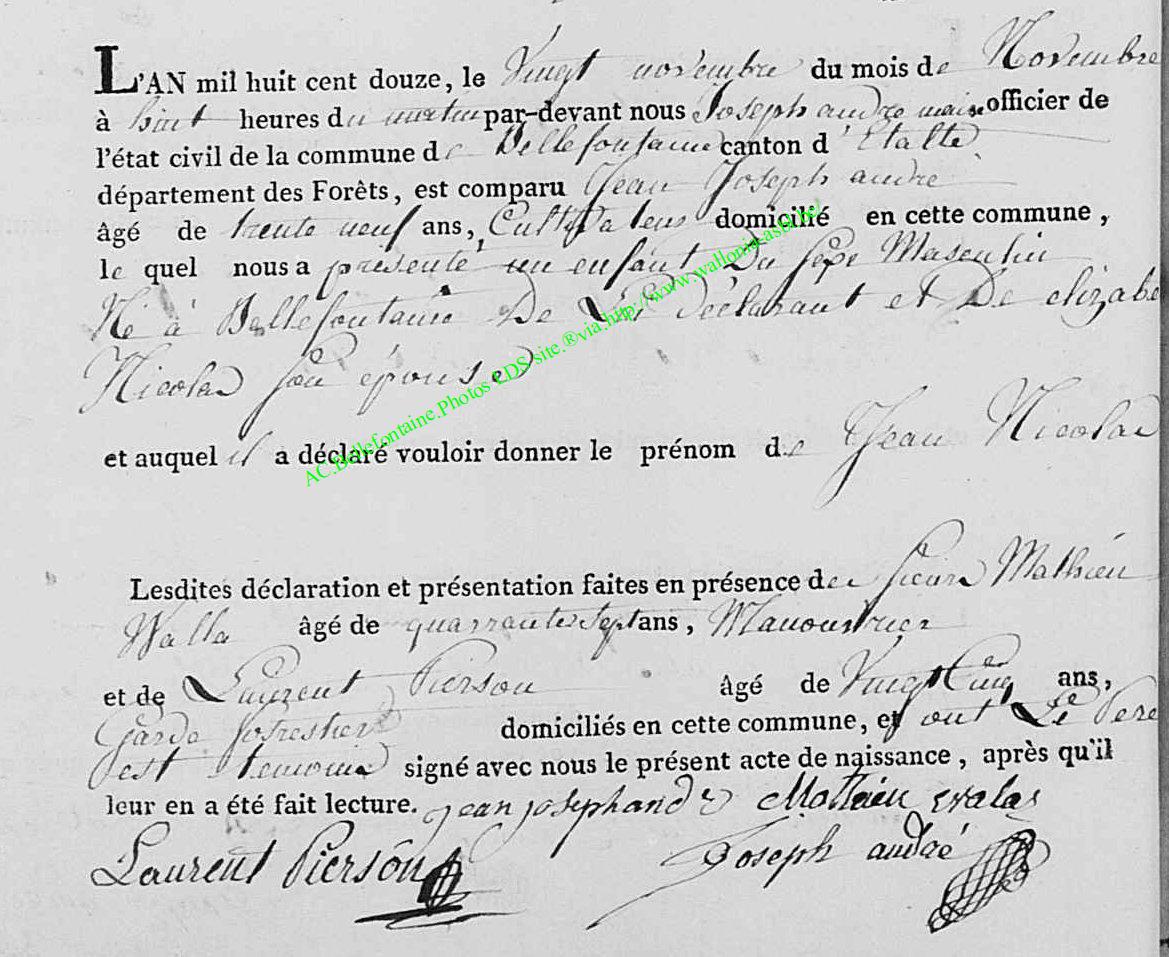 L'AN mil huit cent douze, le Vingt novembre du mois de Novembre
à huit heures du matin par-devant nous Joseph andre maire officier de
l'état civil de la commune de Bellefontaine canton d'Etalle
département des Forêts, est comparu Jean Joseph andré
âgé de trente neuf ans, Cultivateur domicilié en cette commune,
le quel nous a présenté un enfant Du sexe Masculin
Né à Bellefontaine De Lui Déclarant et De elizabe
Nicolas son épouse
et auquel il a déclaré vouloir donner le prénom de Jean Nicolas
Lesdites déclaration et présentation faites en présence de Mathieu
Walla âgé de quarrante sept ans, Manouvrier
et de Laurent Pierson âgé de Vingt Cinq ans,
Garde forestier domiciliés en cette commune, et ont Le Pere
est temoins signé avec nous le présent acte de naissance, après qu'il
leur en a été fait lecture. jean joseph andre Mathieu walas
Laurent Pierson Joseph andré
AC.Bellefontaine.Photos LDS site.®via.http://www.wallonia-asbl.be/